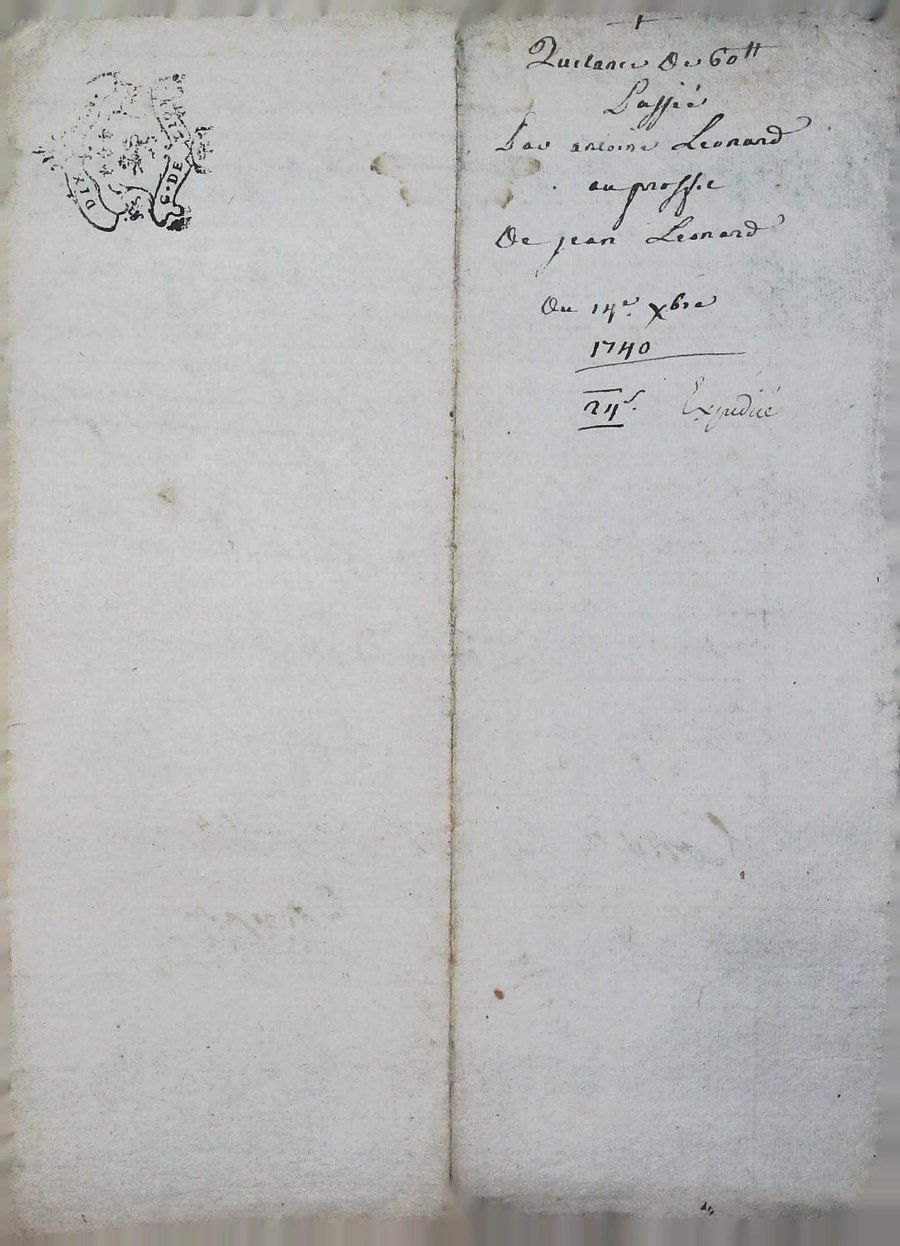 DIX
G. DE
+
Quitance De 60tt
Passée
Par antoine Leonard
au proffic
De jean Leonard
Du 14e. xbre
1740
24s. Expediée